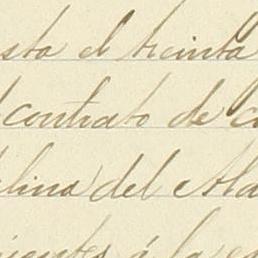 sta el treinta
contrato de c
lina del Ala
ientes á la es